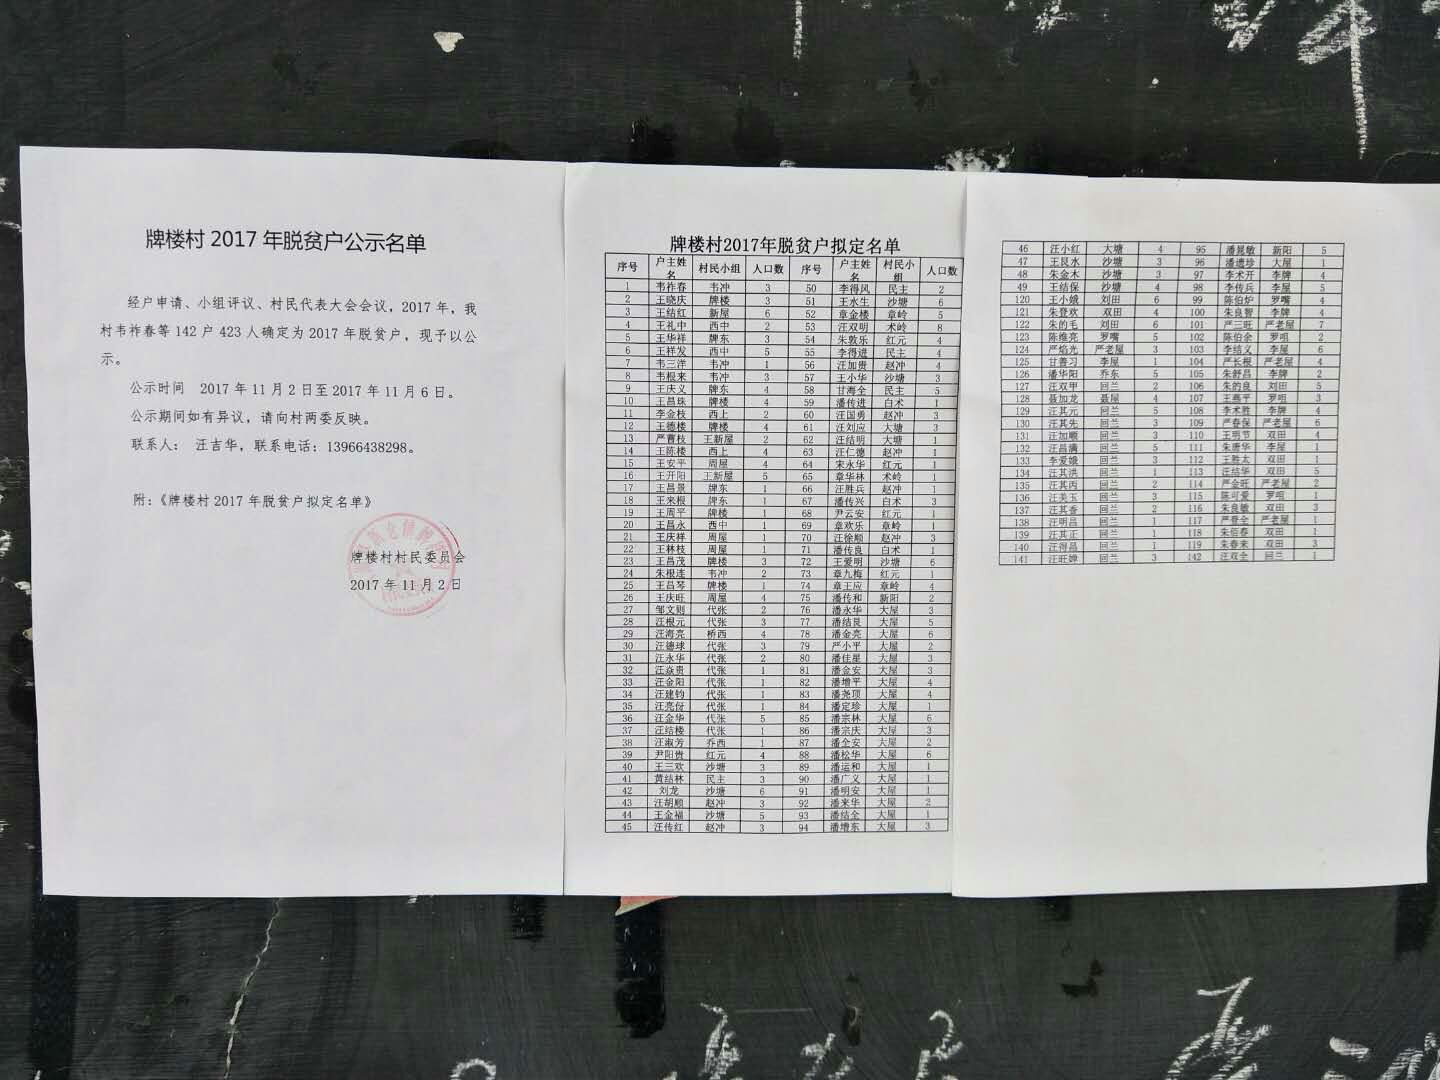 牌楼村 2017 年脱贫户公示名单
经户申请、小组评议、村民代表大会会议，2017 年，我
村韦祚春等 142 户 423 人确定为 2017 年脱贫户，现予以公
示。
公示时间 2017 年 11 月 2 日至 2017 年 11 月 6 日。
公示期间如有异议，请向村两委反映。
联系人： 汪吉华，联系电话：13966438298。
附：《牌楼村 2017 年脱贫户拟定名单》
牌楼村村民委员会
2017 年 11 月 2 日
牌楼村2017年脱贫户拟定名单
序号 户主姓名 村民小组 人口数 序号 户主姓名 村民小组 人口数
1 韦祚春 韦冲 3 50 李得风 民主 2
2 王晓庆 牌楼 3 51 王水生 沙塘 6
3 王结红 新屋 6 52 章金楼 章岭 5
4 王礼中 西中 2 53 汪双明 术岭 8
5 王华祥 牌东 3 54 朱敦乐 红元 4
6 王祥发 西中 5 55 李得进 民主 4
7 韦三洋 韦冲 1 56 汪加贵 赵冲 4
8 韦根来 韦冲 3 57 王小华 沙塘 3
9 王庆义 牌东 4 58 甘海全 民主 5
10 王昌珠 牌楼 4 59 潘传进 白术 1
11 李金枝 西上 2 60 汪国勇 赵冲 3
12 王德楼 牌楼 4 61 汪刘应 大塘 3
13 严曹枝 王新屋 2 62 汪结明 大塘 1
14 王陈楼 西上 4 63 汪仁德 赵冲 1
15 王安平 周屋 4 64 宋永华 红元 1
16 王开阳 王新屋 5 65 章华林 术岭 1
17 王昌景 牌东 1 66 汪胜兵 赵冲 1
18 王来根 牌东 1 67 潘传兴 白术 3
19 王周平 牌楼 1 68 尹云安 红元 1
20 王昌永 西中 1 69 章欢乐 章岭 1
21 王庆祥 周屋 1 70 汪徐顺 赵冲 3
22 王林枝 周屋 1 71 潘传良 白术 1
23 王昌茂 牌楼 3 72 王爱明 沙塘 6
24 朱根连 韦冲 2 73 章九梅 红元 1
25 王昌琴 牌楼 1 74 章王应 章岭 4
26 王庆旺 周屋 4 75 潘传和 新阳 2
27 邹文则 代张 2 76 潘永华 大屋 3
28 汪根元 代张 3 77 潘结艮 大屋 5
29 汪海亮 桥西 4 78 潘金亮 大屋 6
30 汪德球 代张 3 79 严小平 大屋 2
31 汪永华 代张 2 80 潘佳星 大屋 3
32 汪焱贵 代张 1 81 潘金安 大屋 3
33 汪金阳 代张 1 82 潘增平 大屋 4
34 汪建钧 代张 1 83 潘尧顶 大屋 4
35 汪亮份 代张 1 84 潘定珍 大屋 1
36 汪金华 代张 5 85 潘宗林 大屋 6
37 汪结楼 代张 1 86 潘宗庆 大屋 3
38 汪淑芳 乔西 1 87 潘全安 大屋 2
39 尹阳贵 红元 4 88 潘松华 大屋 6
40 王三欢 沙塘 3 89 潘运和 大屋 1
41 黄结林 民主 3 90 潘广义 大屋 1
42 刘龙 沙塘 6 91 潘明安 大屋 1
43 汪胡顺 赵冲 3 92 潘来华 大屋 2
44 王金福 沙塘 5 93 潘结全 大屋 1
45 汪传红 赵冲 3 94 潘增东 大屋 3
46 汪小红 大塘 4 95 潘晁敏 新阳 5
47 王艮水 沙塘 3 96 潘遗珍 大屋 1
48 朱金木 沙塘 3 97 李术开 李牌 4
49 王结保 沙塘 4 98 李传兵 李屋 5
120 王小娥 刘田 6 99 陈伯炉 罗嘴 4
121 朱登欢 双田 4 100 朱良智 李牌 4
122 朱的毛 刘田 6 101 严三旺 严老屋 7
123 陈维亮 罗嘴 5 102 陈伯余 罗咀 2
124 严焰光 严老屋 3 103 李结义 李屋 6
125 甘善习 李屋 1 104 严长根 严老屋 4
126 潘华阳 乔东 5 105 朱舒昌 李牌 2
127 汪双甲 回兰 2 106 朱的良 刘田 5
128 聂加龙 聂屋 4 107 王燕平 罗咀 3
129 汪其元 回兰 5 108 李术胜 李牌 4
130 汪其先 回兰 3 109 严春保 严老屋 6
131 汪加顺 回兰 3 110 王明节 双田 4
132 汪昌满 回兰 5 111 朱唐华 李屋 1
133 李爱娥 回兰 3 112 王胜太 双田 1
134 汪其洪 回兰 1 113 汪结华 双田 5
135 汪其丙 回兰 2 114 严金旺 严老屋 2
136 汪美玉 回兰 3 115 陈可爱 罗咀 1
137 汪其香 回兰 2 116 朱良敏 双田 3
138 汪明昌 回兰 1 117 严登全 严老屋 1
139 汪其正 回兰 1 118 朱佰春 双田 1
140 汪得昌 回兰 1 119 朱春来 双田 3
141 汪旺婵 回兰 3 142 汪双全 回兰 1